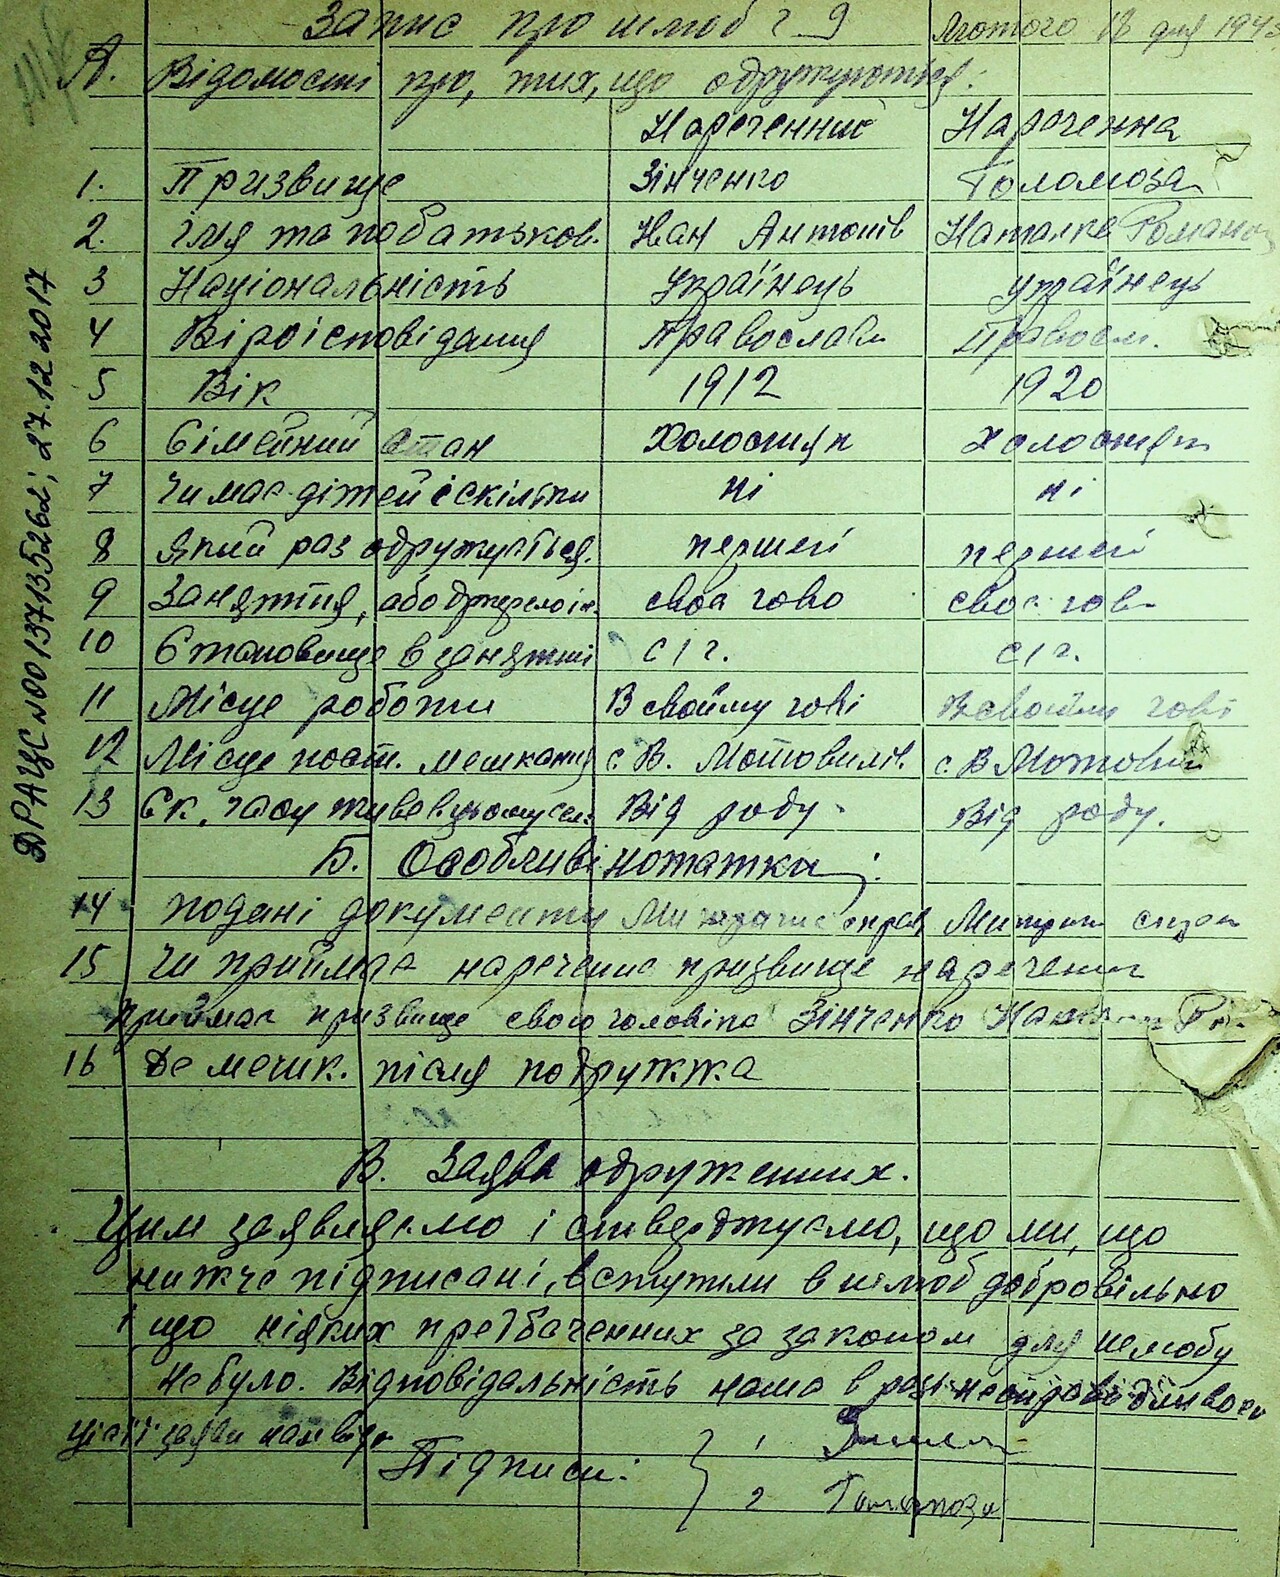 Запис про шлюб ч 9 Лютого 18 дня 1943
А. Відомості про, тих, що одружуються:
Наречений Наречена
1. Призвище Зінченко Голомоза
2. імя та побатьков. Іван Антонів Наталка Романов
3 Національність Українець українець
4 Віроісповідання Православн Правосл.
5 Вік 1912 1920
6 Сімейний стан Холостяк Холостяк
7 Чи має дітей і скільки ні ні
8 Який раз одружується. перший перший
9 Заняття, або джерело ік. своя гово своя гов
10 Становище в занятті с/г. с/г.
11 Місце роботи В своїму гові В своїму гові
12 Місце пост. мешкання с. В. Мотовилів. с. В Мотовил
13 Ск. часу живе в цьому селі Від роду Від роду.
Б. Особливі нотатки:
14 подані документи
15 Чи приймає наречена призвище нареченого
приймає призвище свого чоловіка Зінченко
16 Де мешк. після подружжа
В. Заява одружених.
Цим заявляємо і стверджуємо, що ми, що
нижче підписані, вступили в шлюб добровільно
і що ніяких предбаченних за законом для шлюбу
не було. Відповідальність нама в разі несправедливости
ціеї заяви нам відо
Підписи: 1
2 Голомоза
ДРАЦС №00137135268; 27.12.2017